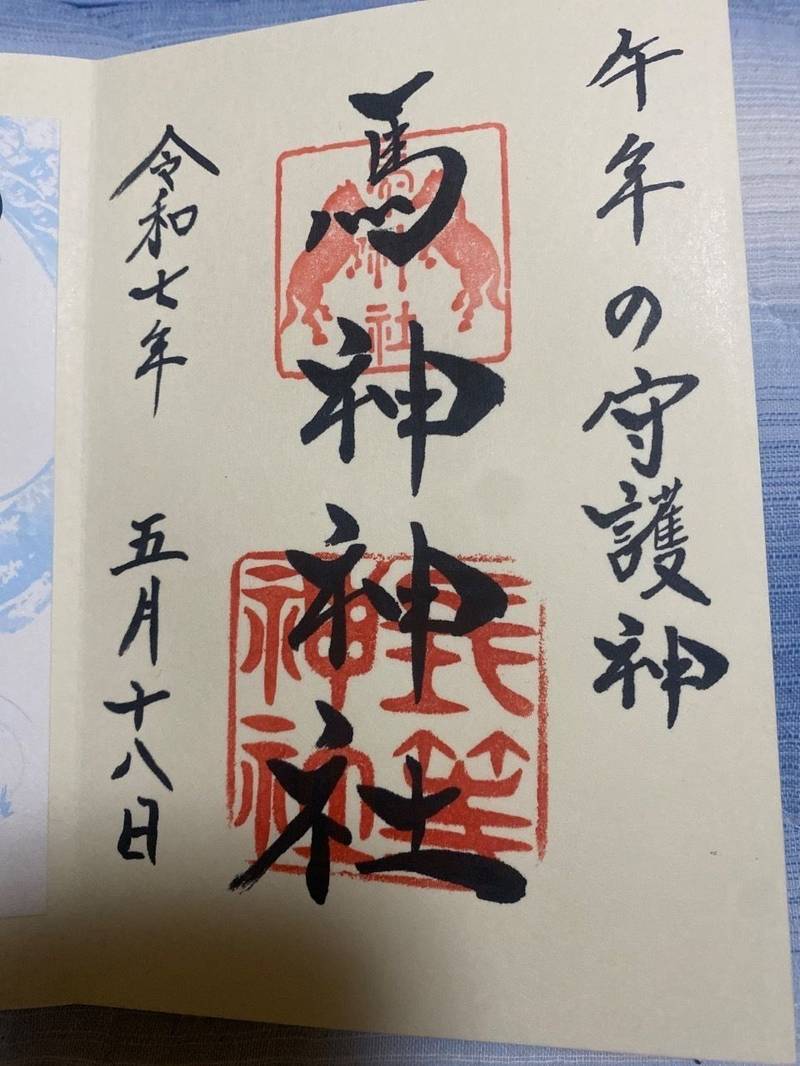 午年の守護神
馬神神社
馬神神社
長等神社
令和七年 五月十八日